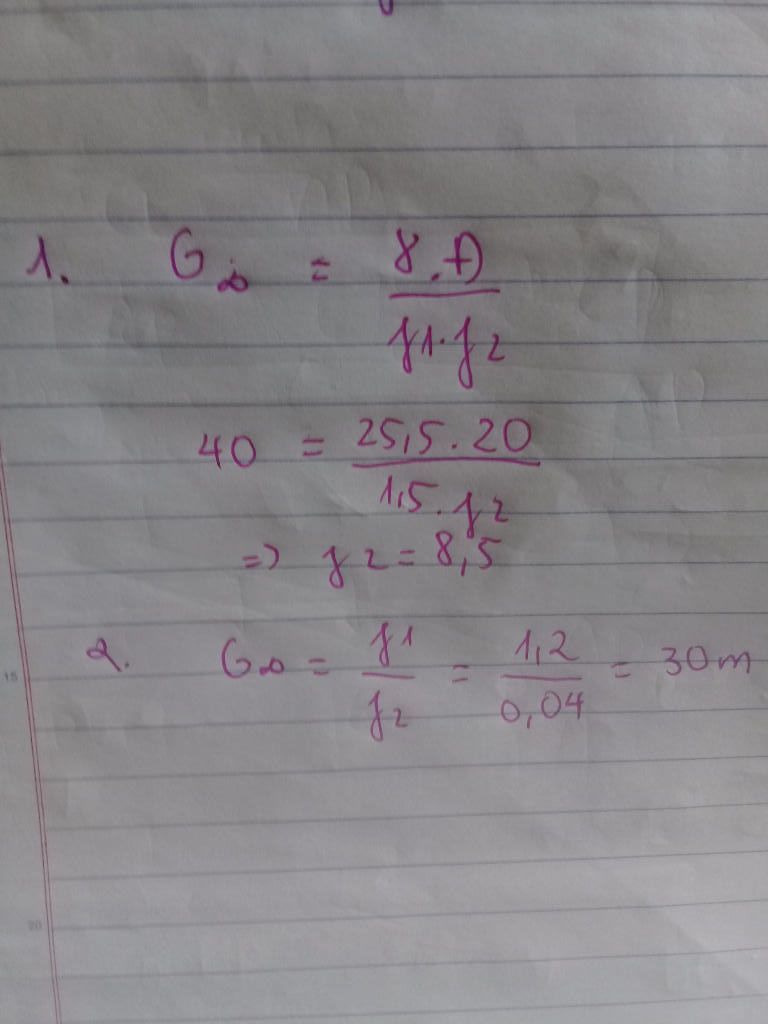 1. G∞ = δ.Đ
f1.f2
40 = 25,5.20
1,5.f2
=> f2 = 8,5
2. G∞ = f1 = 1,2 = 30m
f2 0,04
15
20